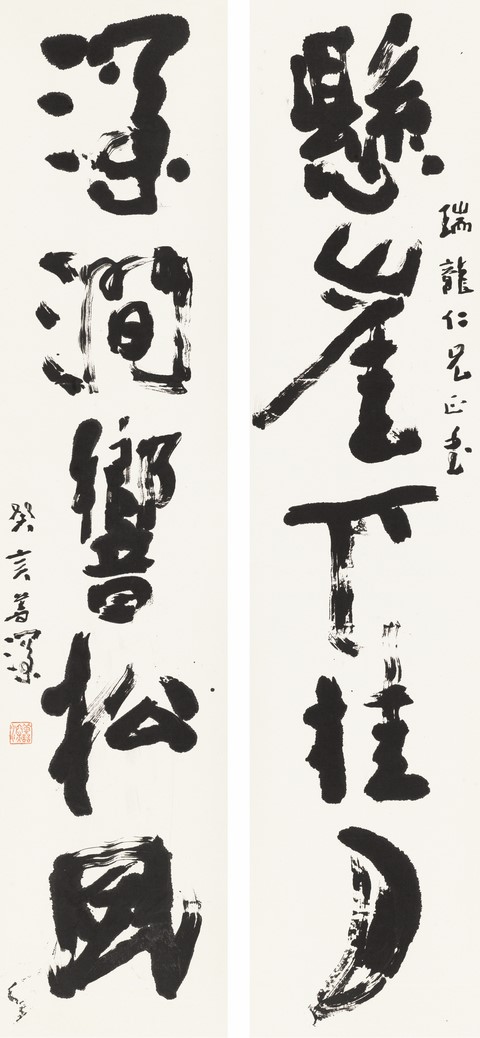 瑞龍仁兄正書
懸崖下桂月
深澗響松風
癸亥曾深